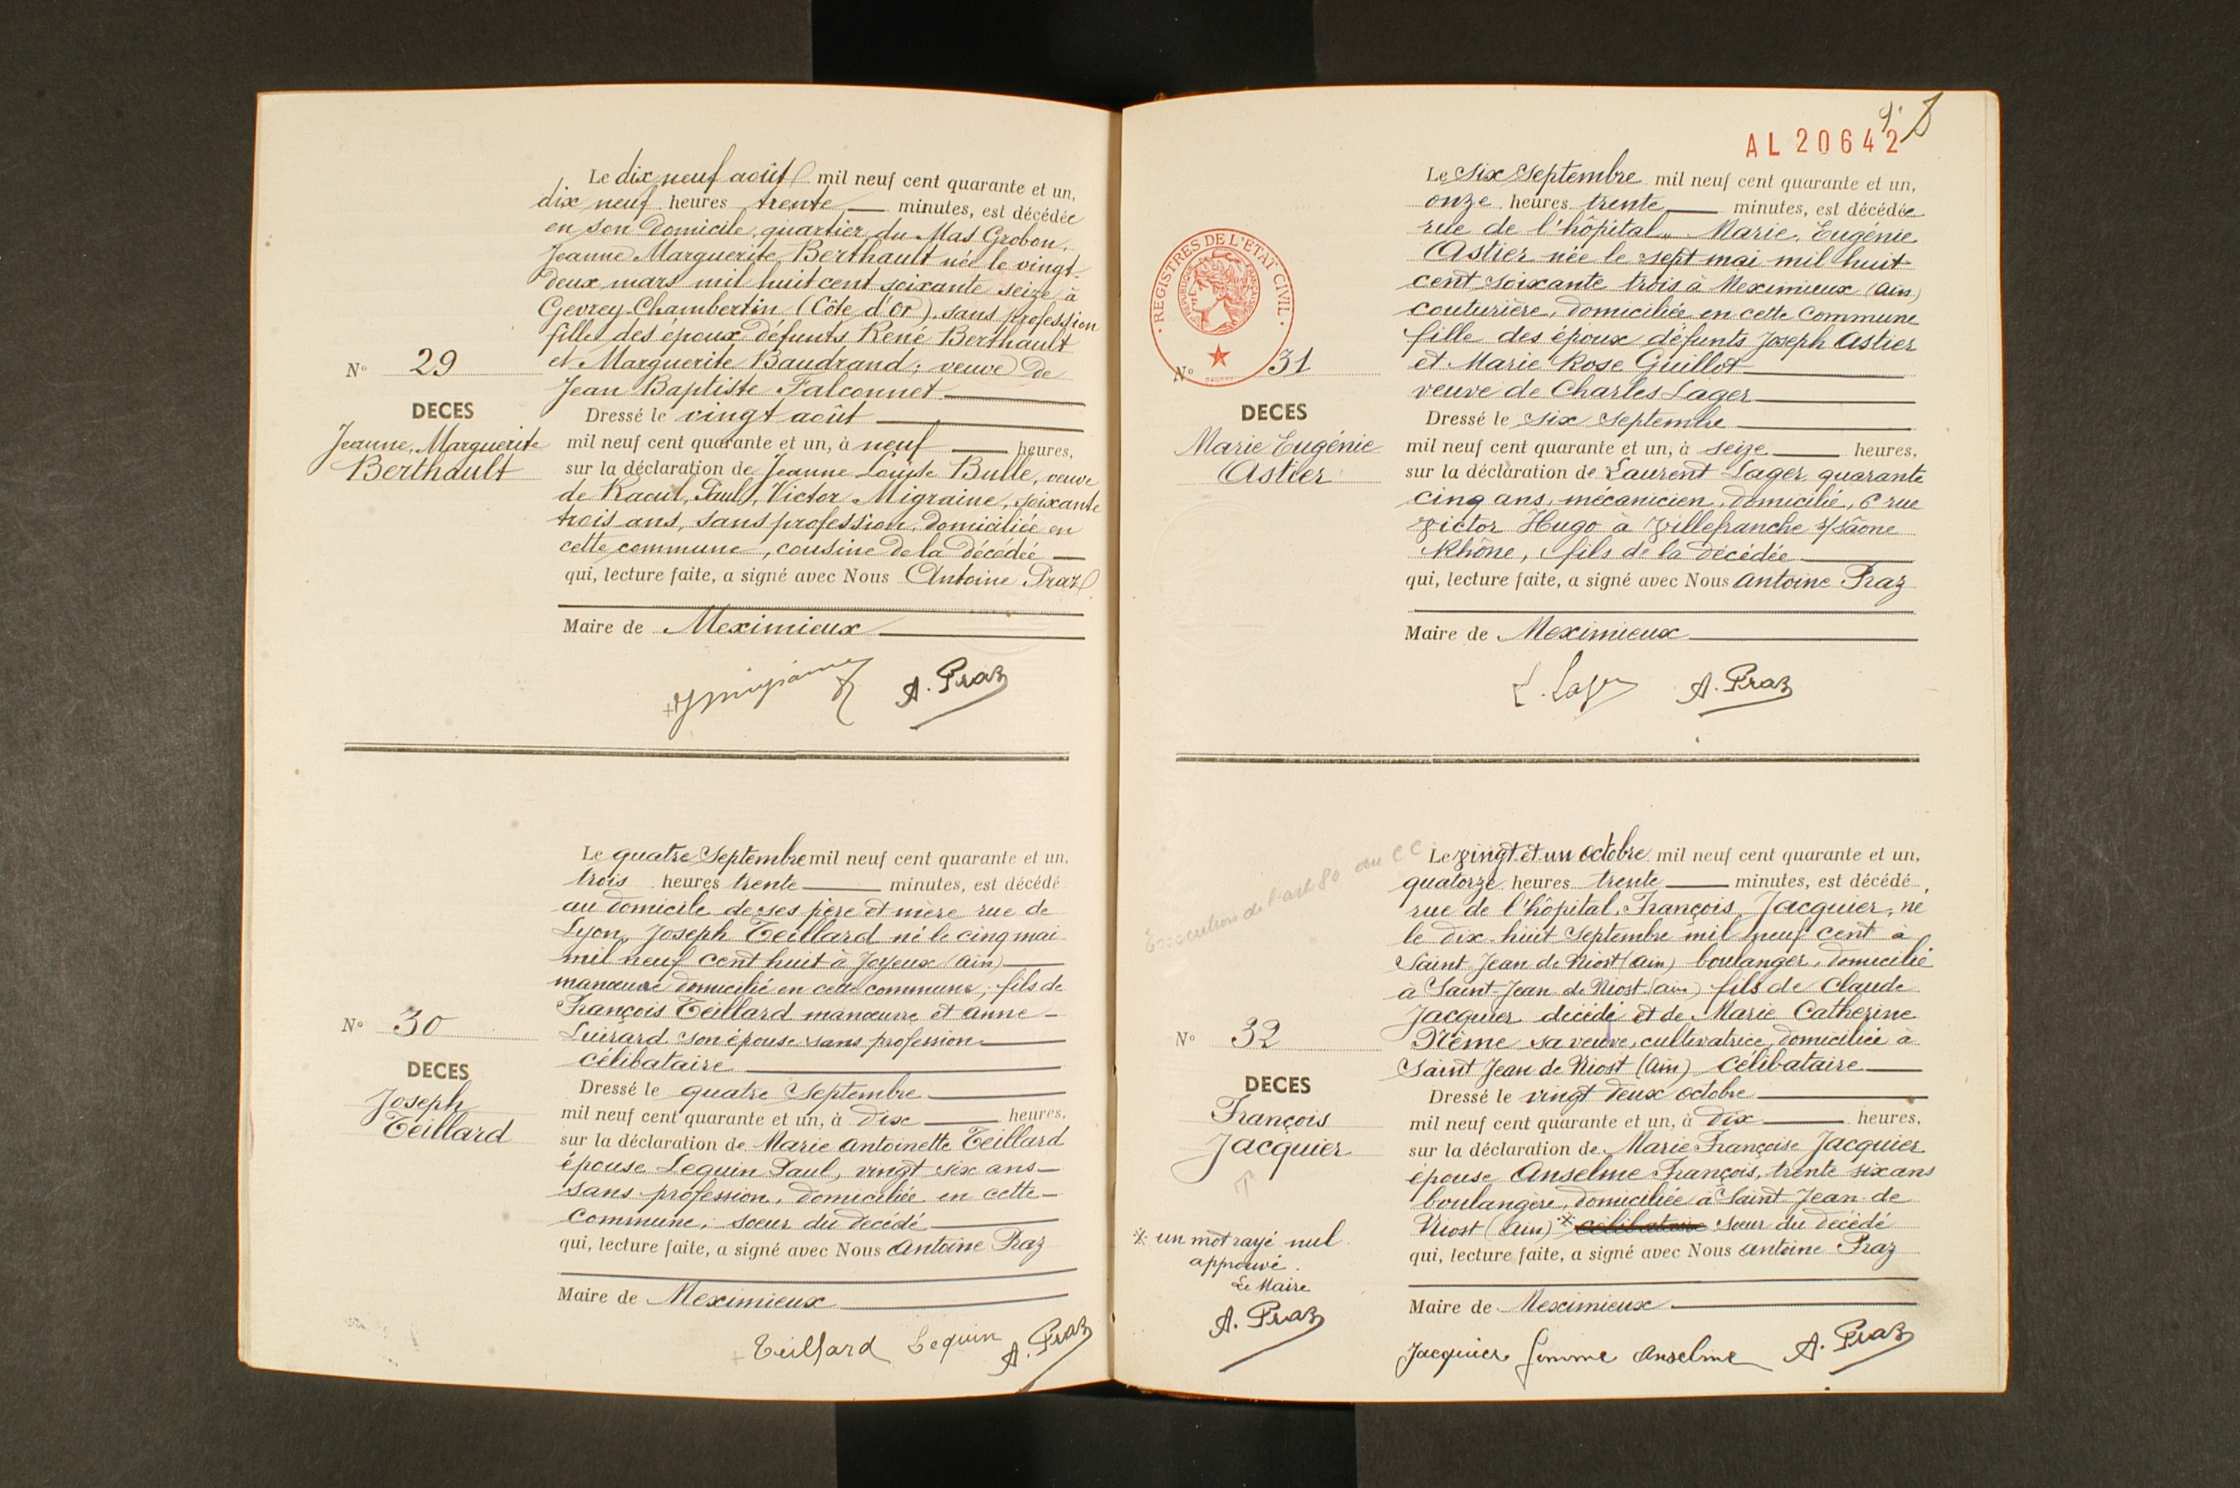 Le dix neuf août mil neuf cent quarante et un,
dix neuf heures trente minutes, est décédée
en son domicile, quartier du Mas Grobon,
Jeanne Marguerite Berthault née le vingt-
deux mars mil huit cent soixante seize à
Gevrey-Chambertin (Côte d'Or), sans profession
fille des époux défunts René Berthault
et Marguerite Baudrand; veuve de
Jean Baptiste Falconnet
N° 29
DECES
Jeanne, Marguerite
Berthault
Dressé le vingt août
mil neuf cent quarante et un, à neuf heures,
sur la déclaration de Jeanne Louise Bulle, veuve
de Raoul, Paul, Victor Migraine, soixante
trois ans, sans profession, domiciliée en
cette commune, cousine de la décédée
qui, lecture faite, a signé avec Nous Antoine Praz
Maire de Meximieux
A. Praz
Le quatre Septembre mil neuf cent quarante et un,
trois heures trente minutes, est décédé
au domicile de ses père et mère rue de
Lyon, Joseph Teillard né le cinq mai
mil neuf cent huit à Joyeux (Ain)
manœuvre domicilié en cette commune; fils de
François Teillard manœuvre et anne-
son épouse sans profession
célibataire
N° 30
DECES
Joseph
Teillard
Dressé le quatre Septembre
mil neuf cent quarante et un, à Dix heures,
sur la déclaration de Marie Antoinette Teillard
épouse Lequin Paul, vingt six ans
sans profession, domiciliée en cette
commune; sœur du décédé
qui, lecture faite, a signé avec Nous Antoine Praz
Maire de Meximieux
Teillard Lequin A. Praz
AL 20642
Le Six Septembre mil neuf cent quarante et un,
onze heures trente minutes, est décédée
rue de l'hôpital, Marie, Eugénie
Astier née le sept mai mil huit
cent soixante trois à Meximieux (Ain)
couturière, domiciliée en cette commune
fille des époux défunts Joseph Astier
et Marie Rose Guillot
veuve de Charles Lager
REGISTRES DE L'ETAT CIVIL
N° 31
DECES
Marie Eugénie
Astier
Dressé le Six Septembre
mil neuf cent quarante et un, à seize heures,
sur la déclaration de Laurent Lager quarante
cinq ans, mécanicien, domicilié, 6 rue
Victor Hugo à Villefranche s/Sâone
Rhône, fils de la décédée
qui, lecture faite, a signé avec Nous Antoine Praz
Maire de Meximieux
L. Lager A. Praz
Execution de l'art 80 du CC
Le Vingt et un Octobre mil neuf cent quarante et un,
quatorze heures trente minutes, est décédé,
rue de l'hôpital, François Jacquier, né
le dix-huit Septembre mil neuf cent à
Saint Jean de Niost (Ain) boulanger, domicilié
à Saint-Jean de Niost (Ain) fils de Claude
Jacquier décédé et de Marie Catherine
sa veuve, cultivatrice, domiciliée à
Saint Jean de Niost (Ain) célibataire
N° 32
DECES
François
Jacquier
Dressé le vingt deux octobre
mil neuf cent quarante et un, à Dix heures,
sur la déclaration de Marie Françoise Jacquier
épouse Anselme François, trente six ans
boulangère, domiciliée à Saint Jean de
Niost (Ain) * célibataire sœur du décédé
qui, lecture faite, a signé avec Nous Antoine Praz
* un mot rayé nul
approuvé.
Le Maire
A. Praz
Maire de Meximieux
Jacquier femme Anselme A. Praz